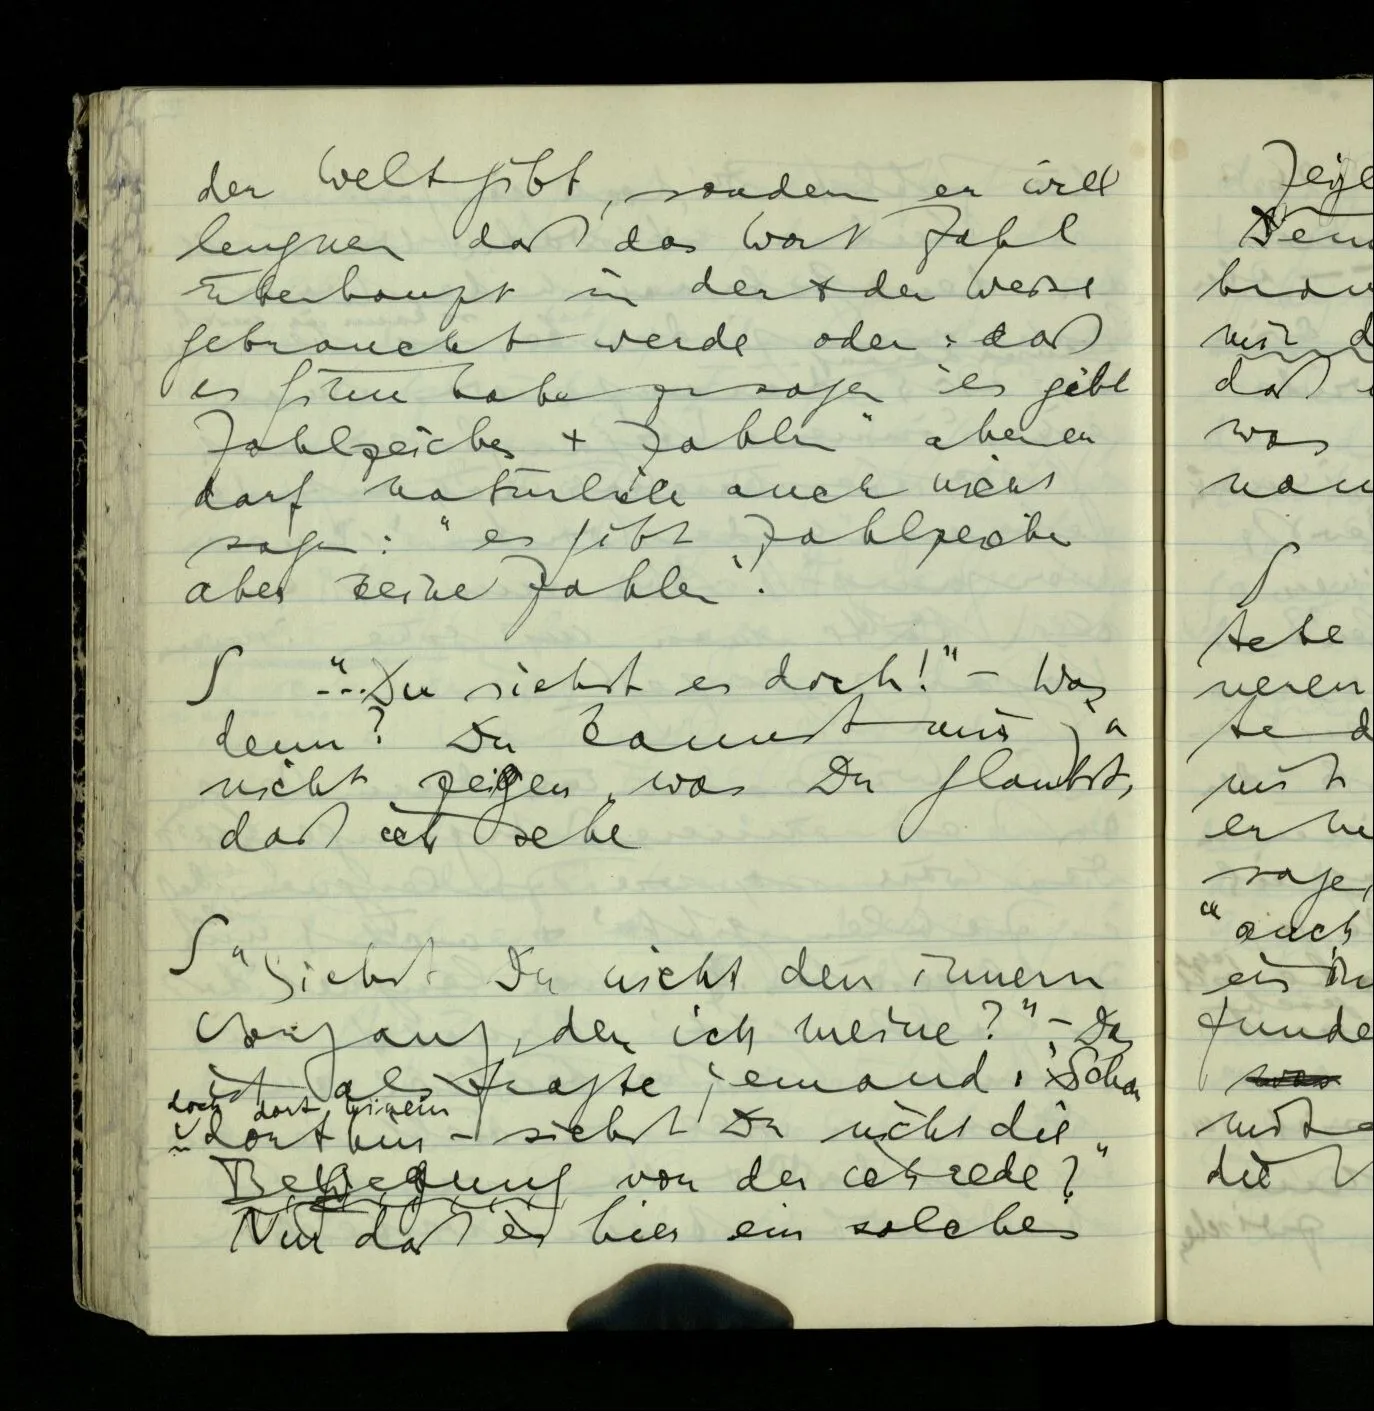 der Welt gibt, sondern er will
leugnen daß das Wort Zahl
überhaupt in der & der Weise
gebraucht werde oder: daß
es Sinn habe zu sagen "es gibt
Zahlzeichen + Zahlen" aber er
darf natürlich auch nicht
sagen: "es gibt Zahlzeichen
aber keine Zahlen".
S "...Du siehst es doch!" – Was
denn? Du kannst mir ja
nicht zeigen, was Du glaubst,
daß ich sehe
S "Siehst Du nicht den innern
Vorgang, den ich meine?" – Das
ist als fragte jemand: "Schau
doch dort hinein
dorthin – siehst Du nicht die
Bewegung von der ich rede?"
Nur daß es hier ein solches
Zeige
Denn
brau
mir d
daß
was
S
te d
mit
er
sage,
"auch
ein
funde
mit
die